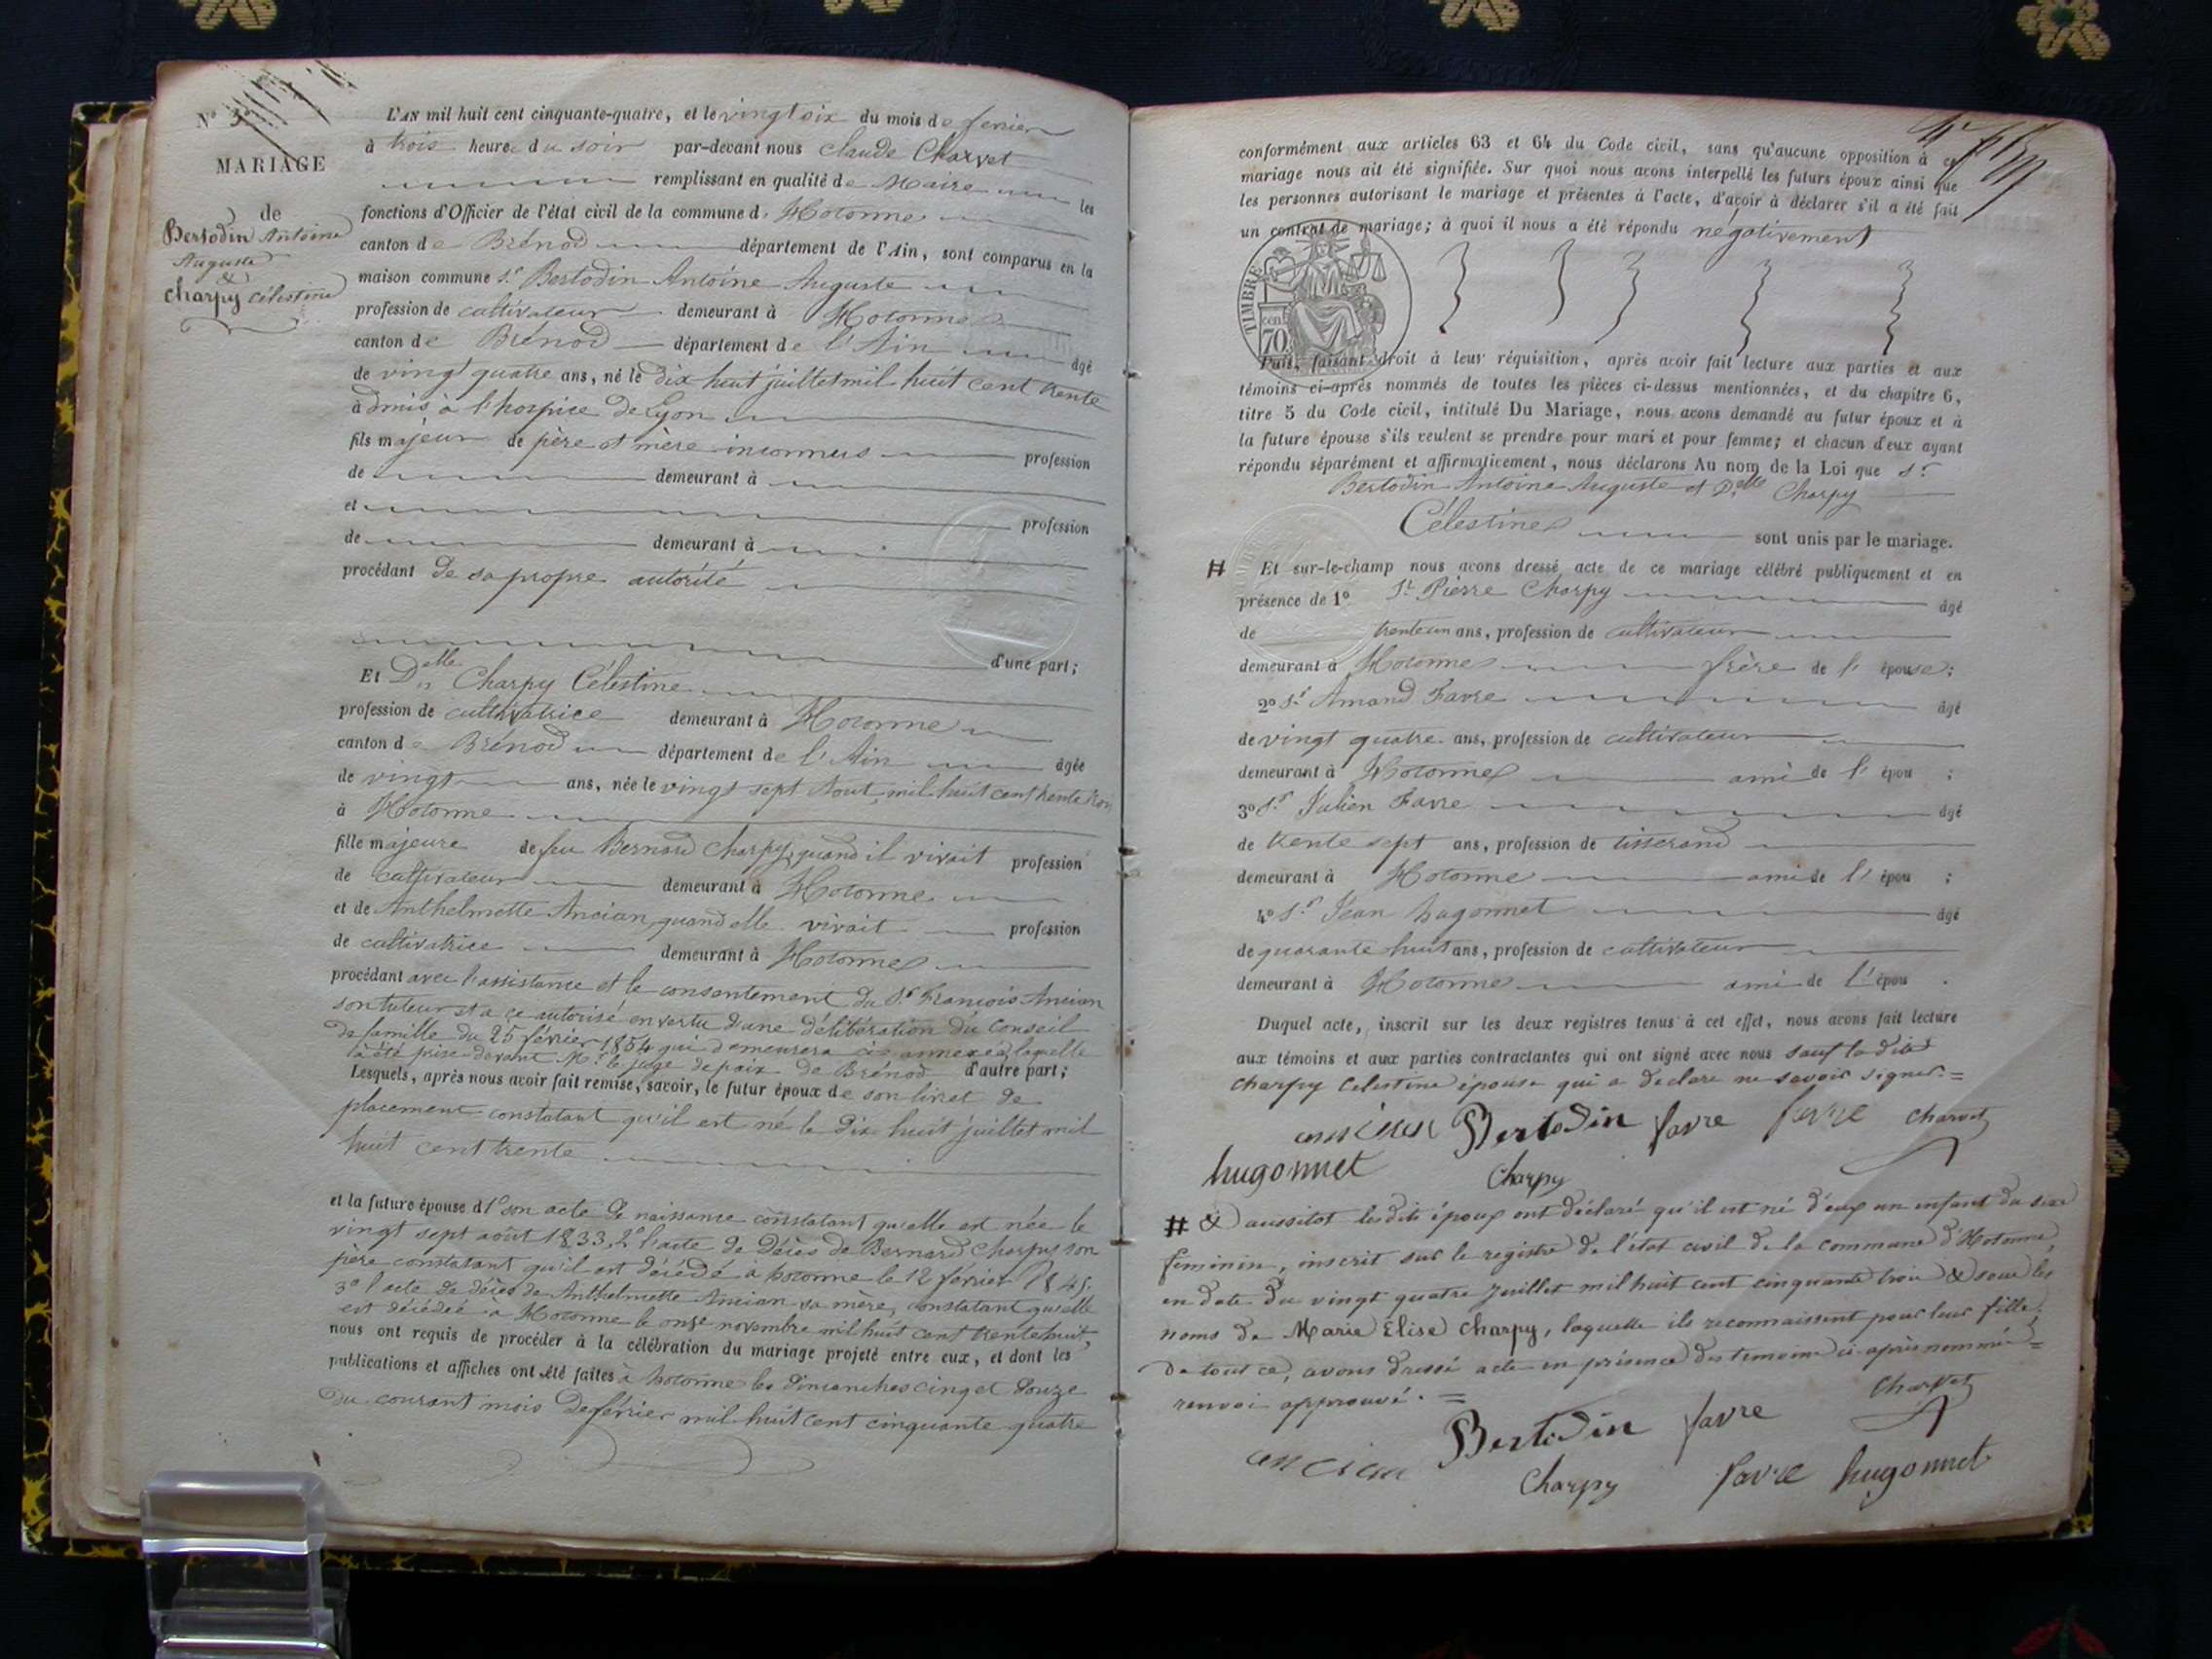 N.º 3
MARIAGE
de
Bertodin Antoine
Auguste
&
Charpy Célestine
L'AN mil huit cent cinquante-quatre, et le vingt six du mois de fevrier
à trois heures du soir par-devant nous Claude Charvet
remplissant en qualité de Maire les
fonctions d'Officier de l'état civil de la commune d'Hotonne
canton de Brénod département de l'Ain, sont comparus en la
maison commune S.r Bertodin Antoine Auguste
profession de cultivateur demeurant à Hotonne
canton de Brénod département de l'Ain âgé
de vingt quatre ans, né le dix huit juillet mil huit cent trente
admis à l'hospice de Lyon
fils majeur de père et mère inconnus profession
de demeurant à
et profession
de demeurant à
procédant de sa propre autorité
d'une part;
Et D.elle Charpy Célestine
profession de cultivatrice demeurant à Hotonne
canton de Brénod département de l'Ain âgée
de vingt ans, née le vingt sept Aout mil huit cent trente trois
à Hotonne
fille majeure de feu Bernard Charpy, quand il vivait profession
de cultivateur demeurant à Hotonne
et de Anthelmette Ancian, quand elle vivait profession
de cultivatrice demeurant à Hotonne
procédant avec l'assistance et le consentement du S.r François Ancian
son tuteur et a ce autorisé en vertu d'une délibération du Conseil
de famille du 25 février 1854 qui demeurera ci annexée, laquelle
a été prise devant M.r le juge de paix de Brénod d'autre part;
Lesquels, après nous avoir fait remise, savoir, le futur époux de son livret de
placement constatant qu'il est né le dix huit juillet mil
huit cent trente
et la future épouse d 1º son acte de naissance constatant qu'elle est née le
vingt sept août 1833, 2º l'acte de décès de Bernard Charpy son
père constatant qu'il est décédé à hotonne le 12 février 1845.
3º l'acte de décès de Anthelmette Ancian sa mère, constatant qu'elle
est décédée à Hotonne le onze novembre mil huit cent trente huit,
nous ont requis de procéder à la célébration du mariage projeté entre eux, et dont les
publications et affiches ont été faites à hotonne les dimanches cinq et douze
du courant mois de février mil huit cent cinquante quatre
conformément aux articles 63 et 64 du Code civil, sans qu'aucune opposition à ce
mariage nous ait été signifiée. Sur quoi nous avons interpellé les futurs époux ainsi que
les personnes autorisant le mariage et présentes à l'acte, d'avoir à déclarer s'il a été fait
un contrat de mariage; à quoi il nous a été répondu négativement
TIMBRE
cent.
70
Puis, faisant droit à leur réquisition, après avoir fait lecture aux parties et aux
témoins ci-après nommés de toutes les pièces ci-dessus mentionnées, et du chapitre 6,
titre 5 du Code civil, intitulé Du Mariage, nous avons demandé au futur époux et à
la future épouse s'ils veulent se prendre pour mari et pour femme; et chacun d'eux ayant
répondu séparément et affirmativement, nous déclarons Au nom de la Loi que S.r
Bertodin Antoine Auguste et D.elle Charpy
Célestine sont unis par le mariage.
# Et sur-le-champ nous avons dressé acte de ce mariage célébré publiquement et en
présence de 1º S.r Pierre Charpy âgé
de trente un ans, profession de cultivateur
demeurant à Hotonne frère de l'épouse;
2º S.r Amand Favre âgé
de vingt quatre ans, profession de cultivateur
demeurant à Hotonne ami de l'épou ;
3º S.r Julien Favre âgé
de trente sept ans, profession de tisserand
demeurant à Hotonne ami de l'épou ;
4º S.r Jean hugonnet âgé
de quarante huit ans, profession de cultivateur
demeurant à Hotonne ami de l'épou .
Duquel acte, inscrit sur les deux registres tenus à cet effet, nous avons fait lecture
aux témoins et aux parties contractantes qui ont signé avec nous sauf la dite
charpy Celestine épouse qui a déclaré ne savoir signer. =
ancian Bertodin favre favre charvet
hugonnet Charpy
# & aussitot lesdits époux ont déclaré qu'il est né d'eux un enfant du sexe
feminin, inscrit sur le registre de l'état civil de la commune d'Hotonne,
en date du vingt quatre juillet mil huit cent cinquante trois & sous les
noms de Marie Elise Charpy, laquelle ils reconnaissent pour leur fille.
de tout ce, avons dressé acte en présence des temoins ci-après nommés =
renvoi approuvé. =
ancian Bertodin favre Charvet
Charpy favre hugonnet